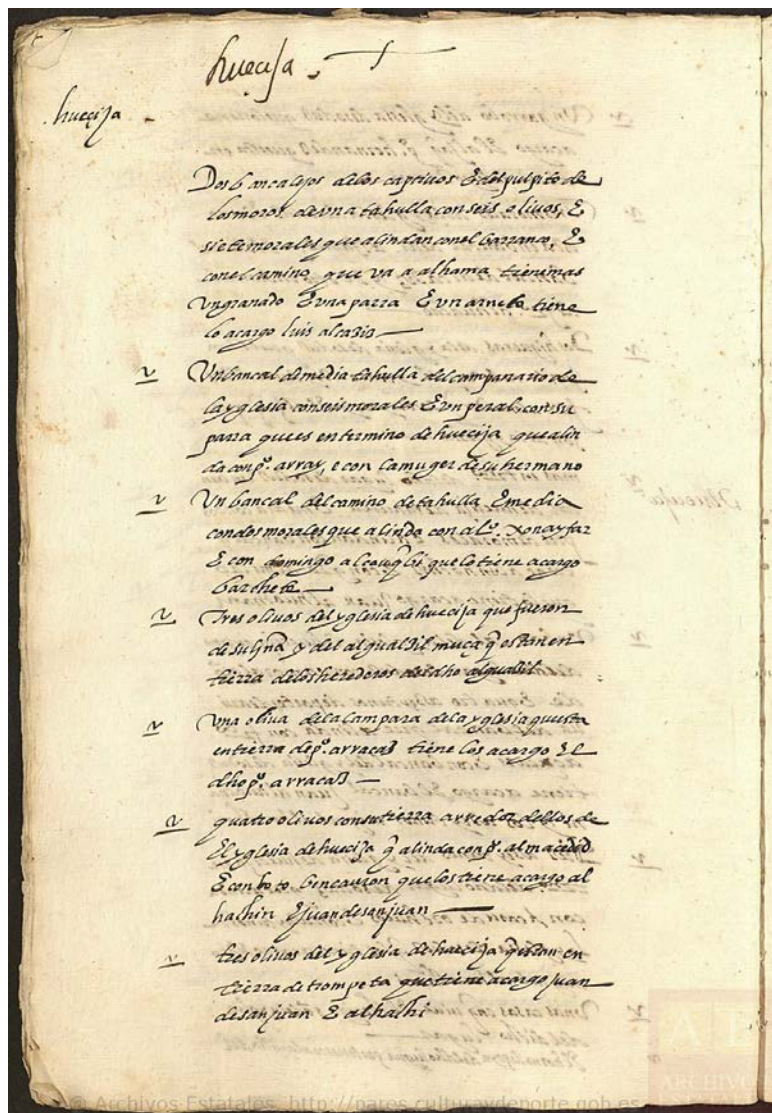 hueçija
hueçija
Dos bancalejos delos captivos E del pulpito de
los moros de una tahulla con seis olivos, E
siete morales que alindan con el barranco, E
con el camino que va a alhama tiene mas
un granado E una parra E un tiene
lo a cargo luis
Un bancal de media tahulla del campanario de
la yglesia con seis morales E un peral, con su
parra que es en termino de huecija que alin
da con pº. array, e con la muger de su hermano
Un bancal del camino de tahulla E media
con dos morales que alinda con alº. xonayfar
E con domingo que lo tiene a cargo
barchete
Tres olivos del yglesia de huecija que fueron
de y del alguaZil muça q̃ estan en
tierra delos herederos del dho alguaZil
Una oliva dela lampara dela yglesia questa
en tierra de pº. arracaz tiene los a cargo El
dho pº. arracaz
quatro olivos con su tierra arredor dellos de
El yglesia de huecija q̃ alinda con pº.
E con que los tiene a cargo al
hachin E juan de san juan
tres olivos del yglesia de huecija q̃ estan en
tierra de trompeta que tiene a cargo juan
de san juan E alhachi
Archivos Estatales, http://pares.culturaydeporte.gob.es
ARCHIVOS